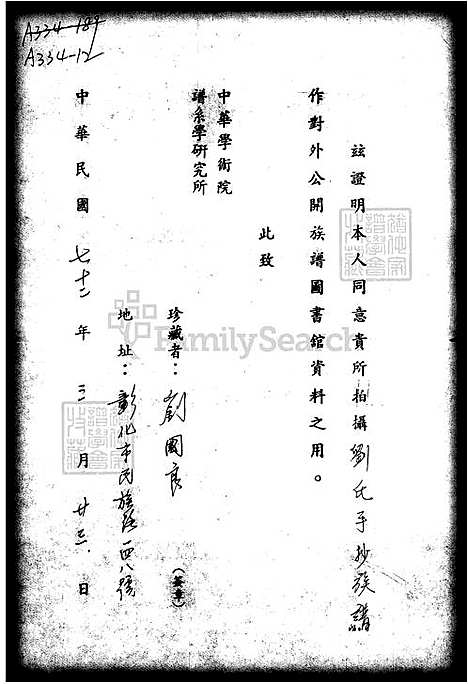 A334-189
A334-12
茲證明本人同意貴所拍攝劉氏手抄族譜
作對外公開族譜圖書館資料之用。
此致
中華學術院
譜系學研究所
珍藏者：劉國良（簽章）
地址：彰化市民族路一四八號
中華民國七十二年三月廿三日
FamilySearch